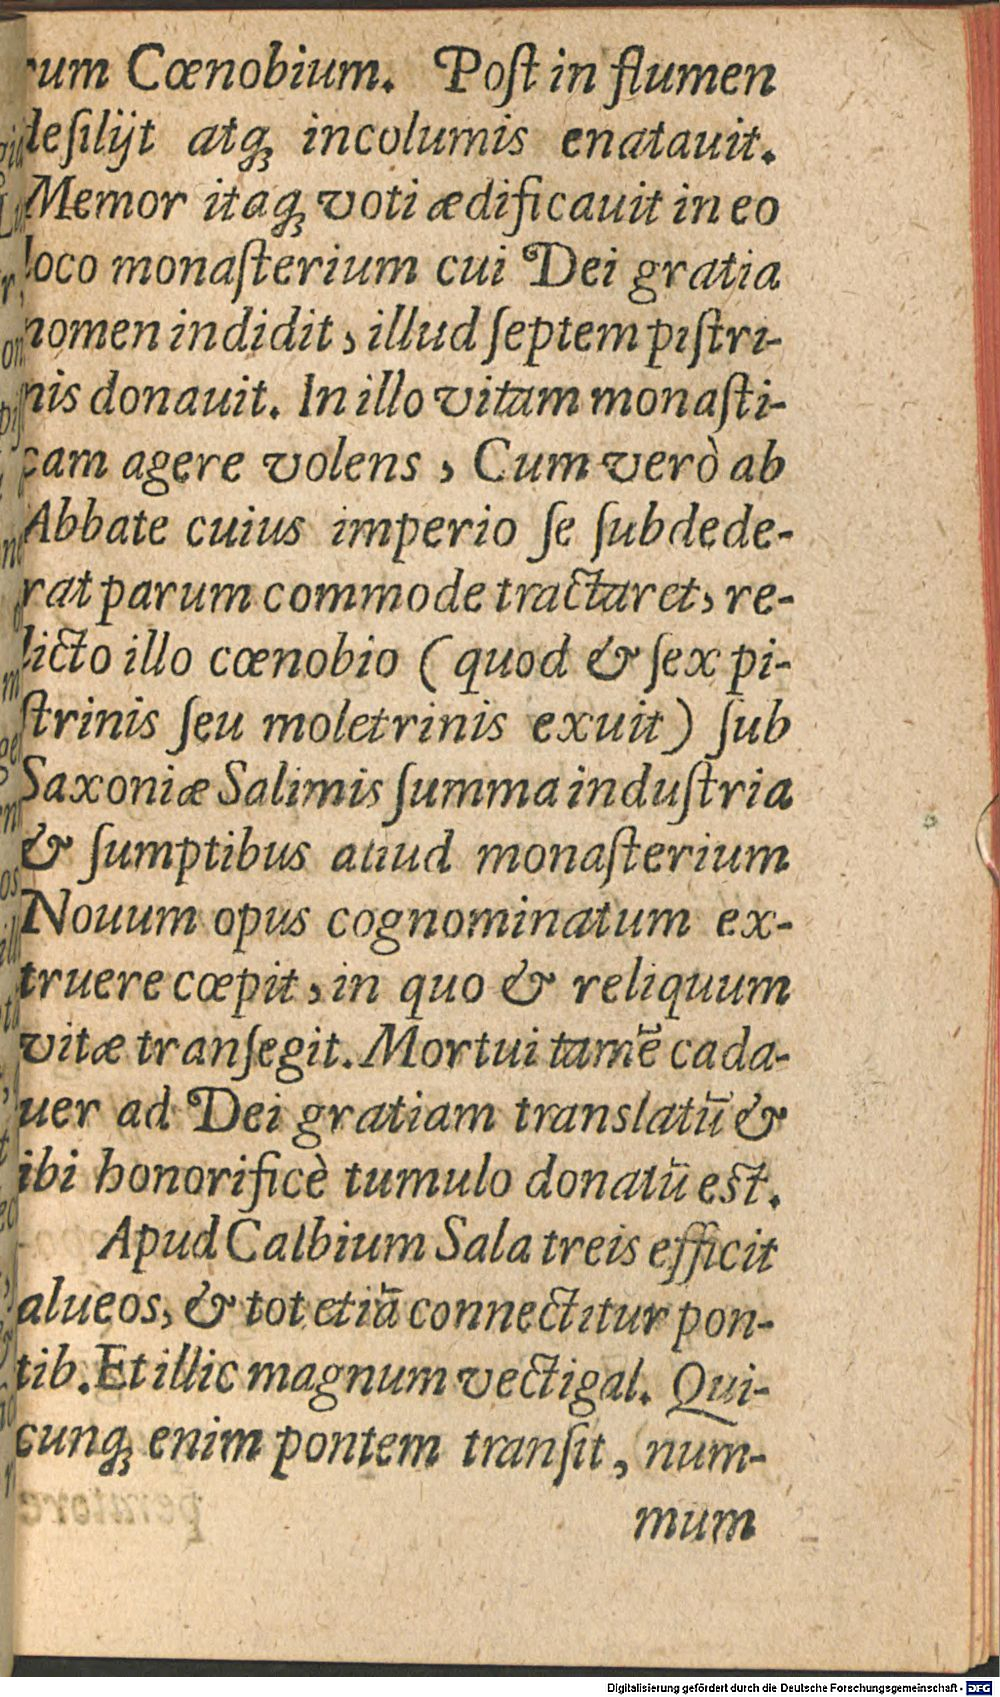 rum Cœnobium. Poſt in flumen
deſilijt atq; incolumis enatauit.
Memor itaq; voti ædificauit in eo
loco monaſterium cui Dei gratia
nomen indidit, illud ſeptem piſtri-
nis donauit. In illo vitam monaſti-
cam agere volens, Cum verò ab
Abbate cuius imperio ſe ſubdede-
rat parum commode tractaret, re-
licto illo cœnobio (quod & ſex pi-
ſtrinis ſeu moletrinis exuit) ſub
Saxoniæ Salimis ſumma induſtria
& ſumptibus aliud monaſterium
Nouum opus cognominatum ex-
truere cœpit, in quo & reliquum
vitæ tranſegit. Mortui tamē cada-
uer ad Dei gratiam translatū &
ibi honorificè tumulo donatū eſt.
Apud Calbium Sala treis efficit
alueos, & tot etiā connectitur pon-
tib. Et illic magnum vectigal. Qui-
cunq; enim pontem tranſit, num-
mum
Digitalisierung gefördert durch die Deutsche Forschungsgemeinschaft - DFG